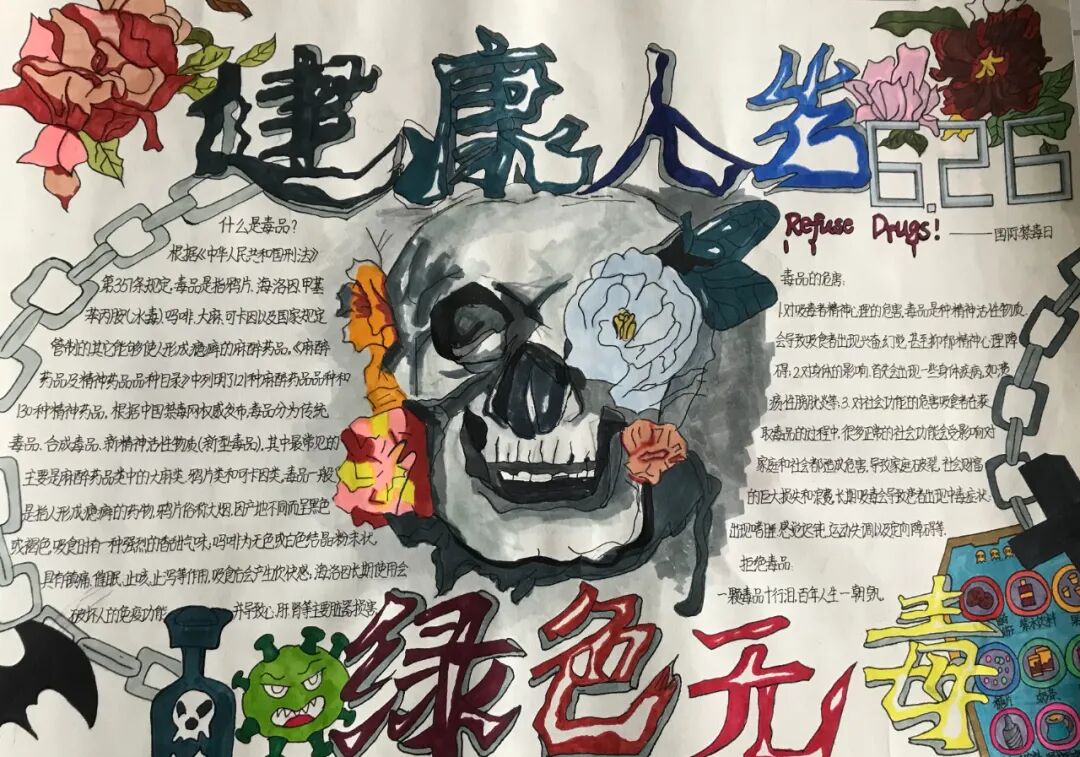 健康人生
6.26
Refuse Drugs!
——国际禁毒日
什么是毒品?
根据《中华人民共和国刑法》
第357条规定,毒品是指鸦片、海洛因、甲基
苯丙胺(冰毒)、吗啡、大麻、可卡因以及国家规定
管制的其它能够使人形成瘾癖的麻醉药品。《麻醉
药品及精神药品品种目录》中列明了121种麻醉药品品种和
130种精神药品。根据中国禁毒网权威发布,毒品分为传统
毒品、合成毒品、新精神活性物质(新型毒品)。其中最常见的
主要是麻醉药品类中的大麻类、鸦片类和可卡因类,毒品一般
是指人形成瘾癖的药物,鸦片俗称大烟,因产地不同而呈黑色
或褐色,吸食时有一种强烈的香甜气味。吗啡为无色或白色结晶粉末状,
具有镇痛、催眠、止咳、止泻等作用,吸食后会产生欣快感,海洛因长期使用会
破坏人的免疫功能 并导致心、肝、肾等主要脏器损害
毒品的危害:
1.对吸毒者精神心理的危害,毒品是种精神活性物质,
会导致吸食者出现兴奋、幻觉,甚至抑郁精神心理障
碍;2.对身体的影响,首先会出现一些身体疾病,如
病,性膀胱炎等;3.对社会功能的危害吸食者在获
取毒品的过程中,很多正常的社会功能会受影响,对
家庭和社会都造成危害,导致家庭破裂,社会财富
的巨大损失和浪费,长期吸毒会导致患者出现中毒症状,
出现嗜睡、感觉迟钝、运动失调以及定向障碍等.
拒绝毒品:
一颗毒品十行泪,百年人生一朝
绿色无毒
奶茶